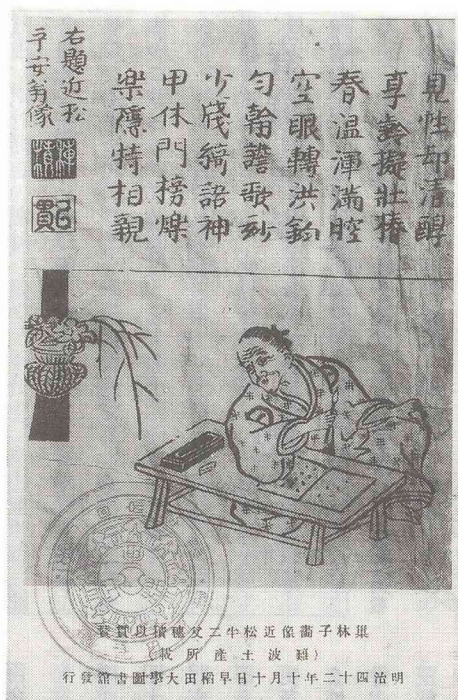 見性却清醇
享壽擬壯椿
春温渾滿腔
空眼轉洪鈞
勻翰譜歌妙
少牋綺語神
甲休門榜爍
樂隱特相親
右題近松
平安翁像
㠯貫
巢林子肖像近松半二父穗積以貫賛
(難波土產所載)
明治四十二年十月十日早稻田大學圖書館發行